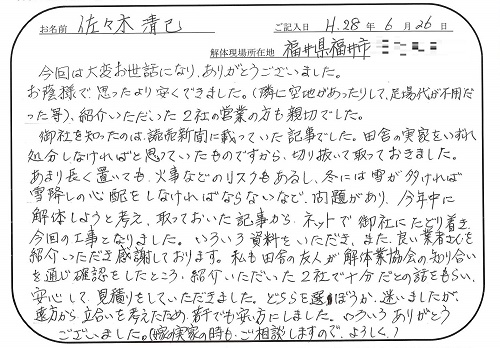 お名前 佐々木 清己 ご記入日 H.28年 6月 26日
解体現場所在地 福井県福井市
今回は大変お世話になり、ありがとうございました。
お陰様で思ったより安くできました。(隣に空地があったりして、足場代が不用だっ
た等)、紹介いただいた2社の営業の方も親切でした。
御社を知ったのは、読売新聞に載っていた記事でした。田舎の実家をいずれ
処分しなければと思っていたものですから、切り抜いて取っておきました。
あまり長く置いても、火事などのリスクもあるし、冬には雪が多ければ
雪降しの心配をしなければならないなど、問題があり、今年中に
解体しようと考え、取っておいた記事から、ネットで御社にたどり着き
今回の工事となりました。いろいろ資料をいただき、また、良い業者さんを
紹介いただき感謝しております。私も田舎の友人が解体業協会の知り合い
を通じ確認をしたところ、紹介いただいた2社で十分だとの話をもらい、
安心して、見積りをしていただきました。どちらを選ぼうか、迷いましたが、
遠方から立合いを考えたため、若干でも安い方にしました。いろいろありがとう
ございました。(家内実家の時も、ご相談しますので、よろしく。)